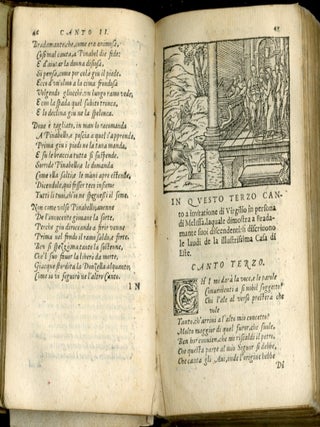 46 CANTO II.
Bradamante, che, come era animosa,
Cosi mal cauta, a Pinabel diè fede:
E d'aiutar la donna disiosa,
Si pensa, come por cola giu il piede.
Ecco d'un'olmo a la cima frondosa
Volgendo gliocchi, un lungo ramo vede,
E con la spada quel subito tronca,
E lo declina giu ne la spelonca.
Doue è tagliato, in man lo raccomanda
A Pinabello, e poscia a quel s'apprende,
Prima giu i piedi ne la tana manda,
E su le braccia tutta si sospende.
Sorride Pinabello, e le domanda
Come ella salti, e le mani apre e stende,
Dicendole, qui fosser teco insieme
Tutti li tuoi, ch'io ne spegnessi il seme.
Non come volse Pinabello, auenne
De l'innocente giouane la sorte,
Perche giu diroccando a ferir uenne
Prima nel fondo il ramo saldo, e forte.
Ben si spezzò, ma tanto la sostenne
Che'l suo fauor la liberò da morte.
Giacque stordita la Donzella alquanto,
Come io ui seguirò ne l'altro Canto.
IN
IN QVESTO TERZO CAN-
to a imitatione di Virgilio in persona
di Melissa, laquale dimostra a Brada-
mante suoi discendenti si discriuono
le laudi de la Illustrissima Casa di
Este.
CANTO TERZO.
CHI mi darà la voce, e le parole
Conuenienti a si nobil suggetto?
Chi l'ale al verso presterà che
vole
Tanto, ch'arriui a l'alto mio concetto?
Molto maggior di quel furor, che suole,
Ben hor conuien, che mi riscaldi il petto.
Che questa parte al mio Signor si debbe,
Che canta gli Aui, onde l'origine hebbe
Di